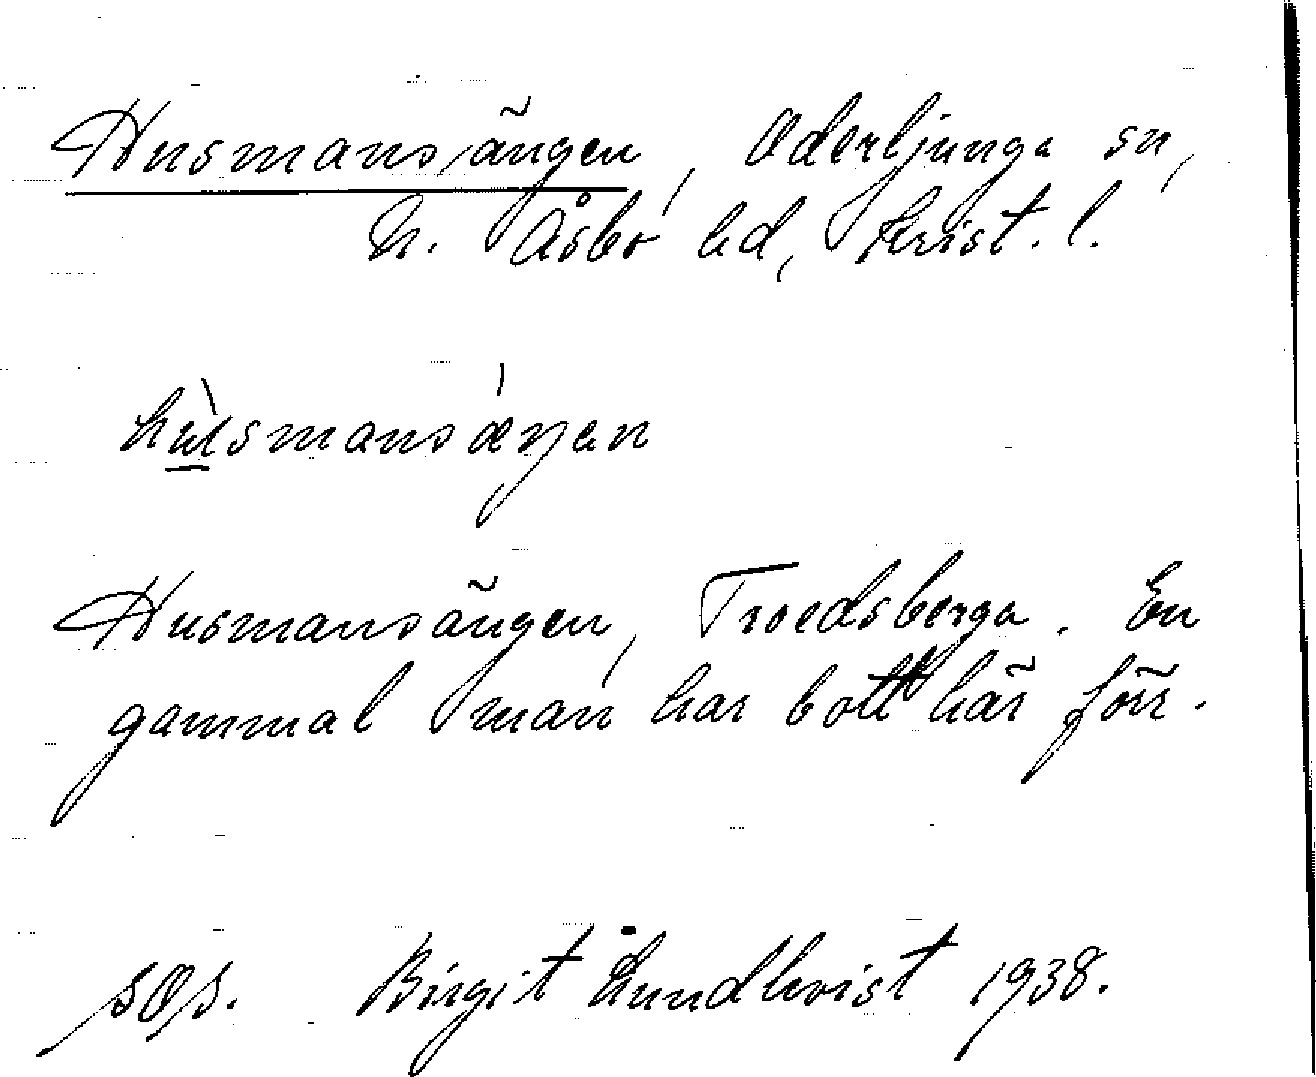 Husmansängen, Oderljunga sn,
N. Åsbo hd, Krist. l.
hùsmansǽŋen
Husmansängen, Troedsberga. En
gammal man har bott här förr.
sOs. Birgit Lundkvist 1938.